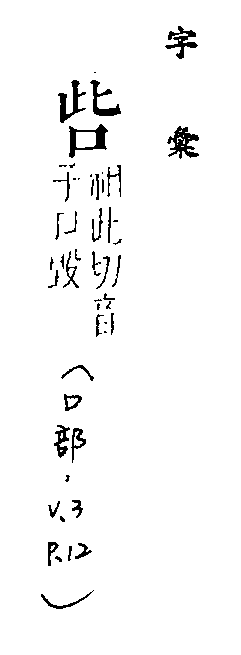 字彙
呰
祖此切音
子口毀
(口部,
V.3
P.12)